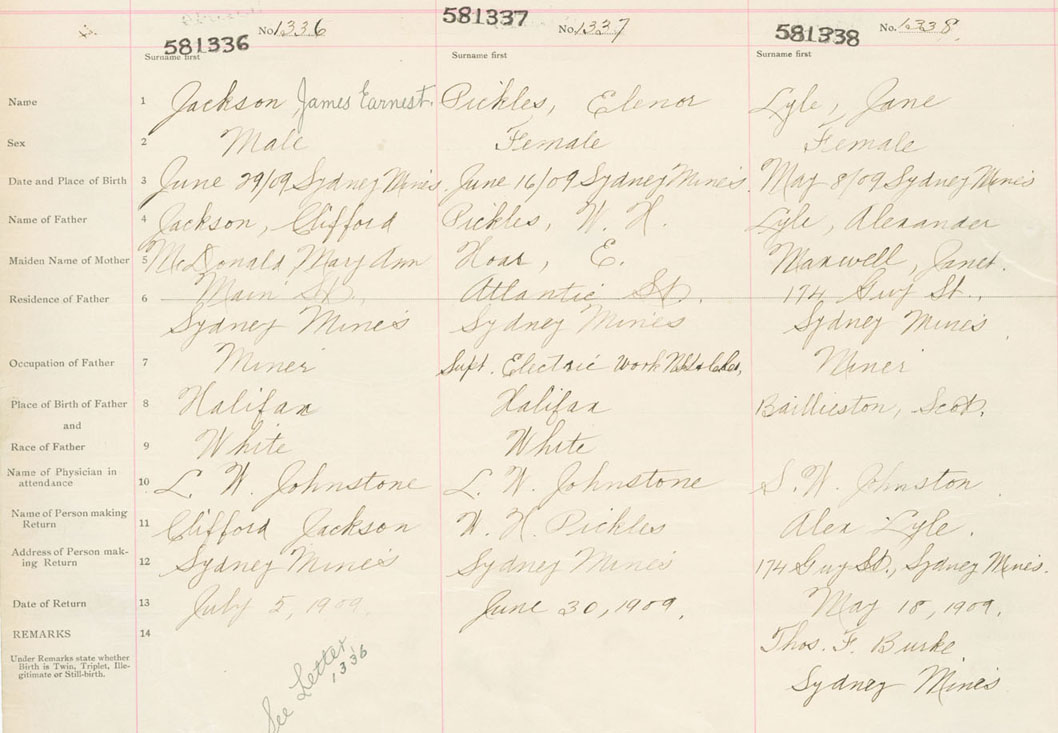 No. 1336 No. 1337 No. 1338
581336 581337 581338
Surname first Surname first Surname first
Name 1 Jackson, James Earnest. Pickles, Elenor Lyle, Jane
Sex 2 Male Female Female
Date and Place of Birth 3 June 29/09 Sydney Mines. June 16/09 Sydney Mines. May 8/09 Sydney Mines
Name of Father 4 Jackson, Clifford Pickles, W. H. Lyle, Alexander
Maiden Name of Mother 5 McDonald, Mary Ann Hoar, E. Maxwell, Janet.
Residence of Father 6 Main St., Atlantic St. 174 Guy St.,
Sydney Mines Sydney Mines Sydney Mines
Occupation of Father 7 Miner Supt. Electric Work Miner
Place of Birth of Father 8 Halifax Halifax Baillieston, Scot.
and
Race of Father 9 White White
Name of Physician in
attendance 10 L. W. Johnstone L. W. Johnstone S. W. Johnston
Name of Person making
Return 11 Clifford Jackson W. H. Pickles Alex Lyle.
Address of Person mak-
ing Return 12 Sydney Mines Sydney Mines 174 Guy St., Sydney Mines.
Date of Return 13 July 5, 1909. June 30, 1909. May 18, 1909.
REMARKS 14 Thos. F. Burke
Sydney Mines
Under Remarks state whether
Birth is Twin, Triplet, Ille-
gitimate or Still-birth.
See Letter
1336